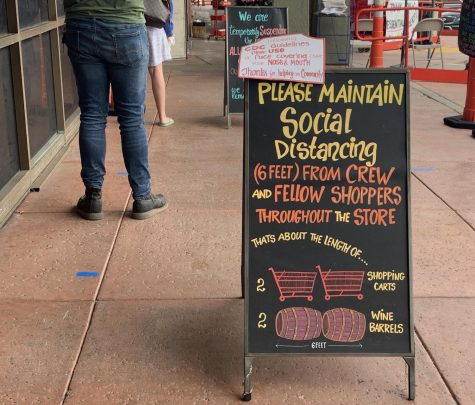 We are
temporarily Suspending
ALL
CDC Guidelines
Please USE
a face covering over
your NOSE & MOUTH
Thanks for helping our Community
PLEASE MAINTAIN
Social
Distancing
(6 FEET) FROM CREW
AND FELLOW SHOPPERS
THROUGHOUT THE STORE
THATS ABOUT THE LENGTH OF....
2 SHOPPING
CARTS
2 WINE
BARRELS
6 FEET